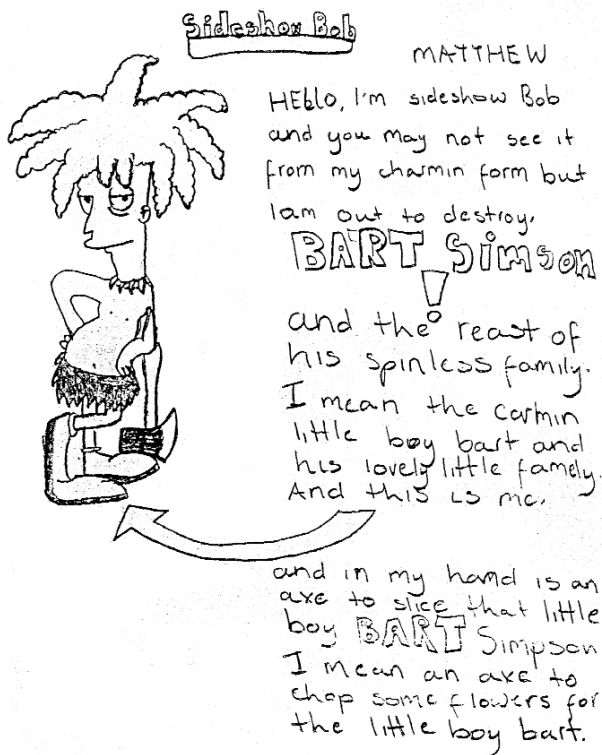 Sideshow Bob
MATTHEW
HEllO, I'm sideshow Bob
and you may not see it
from my charmin form but
I am out to destroy,
BART Simson
!
and the reast of
his spinless family.
I mean the carmin
little boy bart and
his lovely little famely.
And this is me.
and in my hand is an
axe to slice that little
boy BART Simpson
I mean an axe to
chop some flowers for
the little boy bart.